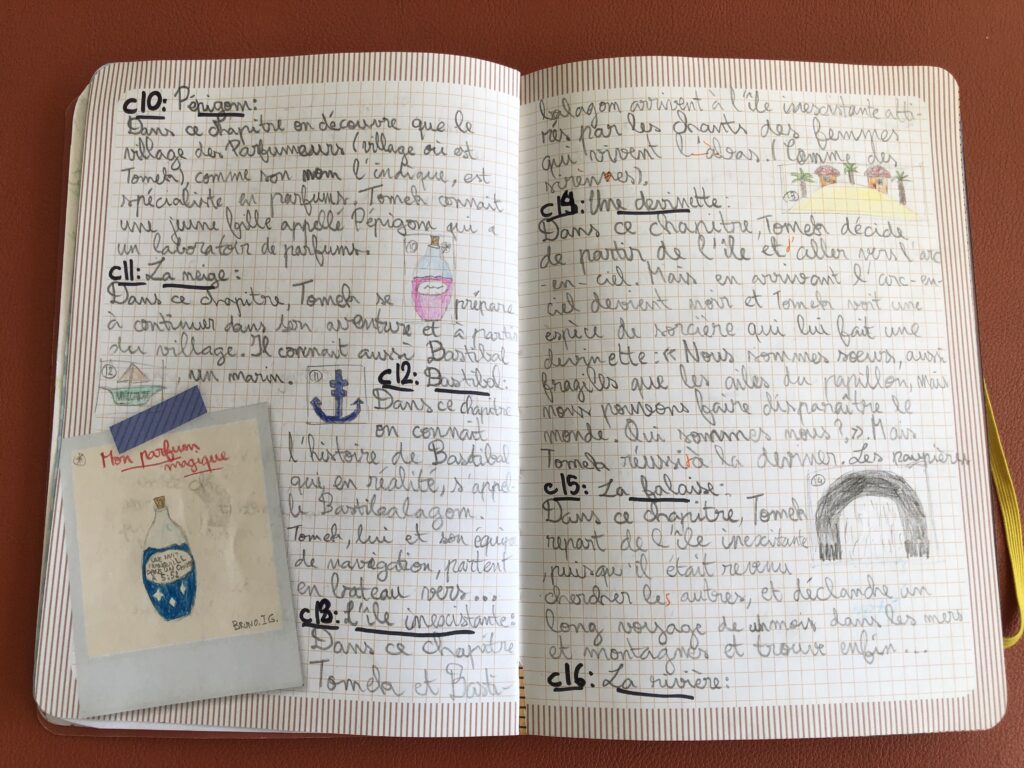 c10: Pépigom:
Dans ce chapitre on découvre que le
village des Parfumeurs (village où est
Tomek), comme son nom l'indique, est
spécialiste en parfums. Tomek connait
une jeune fille appellé Pépigom qui a
un laboratoir de parfums.
c11: La neige:
Dans ce chapitre, Tomek se prépare
à continuer dans son aventure et à partir
du village. Il connait aussi Bastibal
, un marin.
c12: Bastibal:
Dans ce chapitre
on connait
l'histoire de Bastibal
que, en réalité, s'appel-
le Bastibalagom.
Tomek, lui et son équipe
de navigation, partent
en bateau vers...
c13: L'île inexistante:
Dans ce chapitre
Tomek et Basti-
Mon parfum
magique
BRUNO.I.G.
balagom arrivent à l'île inexistante atti-
rés par les chants des femmes
qui vivent là-bas. (Comme des
sirènes).
c14: Une devinette:
Dans ce chapitre, Tomek décide
de partir de l'île et d'aller vers l'arc
-en-ciel. Mais en arrivant l'arc-en-
ciel devient noir et Tomek voit une
espèce de sorcière qui lui fait une
devinette: « Nous sommes sœurs, aussi
fragiles que les ailes du papillon, mais
nous pouvons faire disparaître le
monde. Qui sommes nous?,». Mais
Tomek réussi à la deviner. Les paupières
c15: La falaise:
Dans ce chapitre, Tomek
repart de l'île inexistante
, puisqu'il était revenu
chercher les autres, et déclanche un
long voyage de un mois dans les mers
et montagnes et trouve enfin...
c16: La rivière: